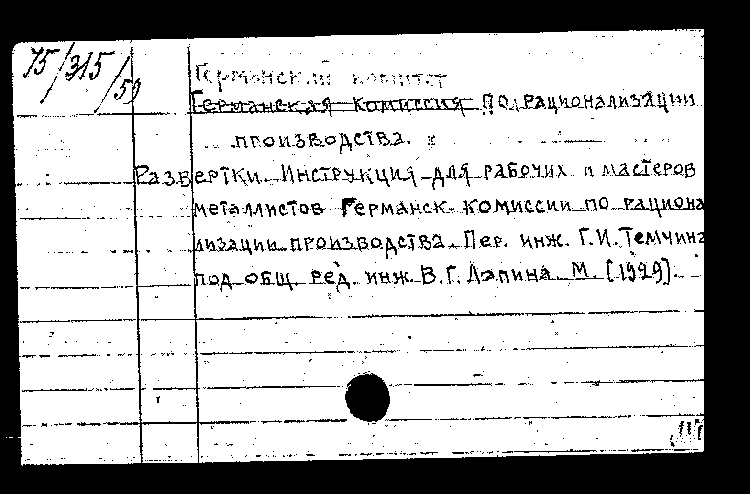 75/315/59
Германский комитет
Германская комиссия по рационализации
производства.
Развертки. Инструкция для рабочих и мастеров
металлистов Германск. комиссии по рациона
лизации производства. Пер. инж. Г.И. Темчина
под общ. ред. инж. В.Г. Лапина М. [1929].